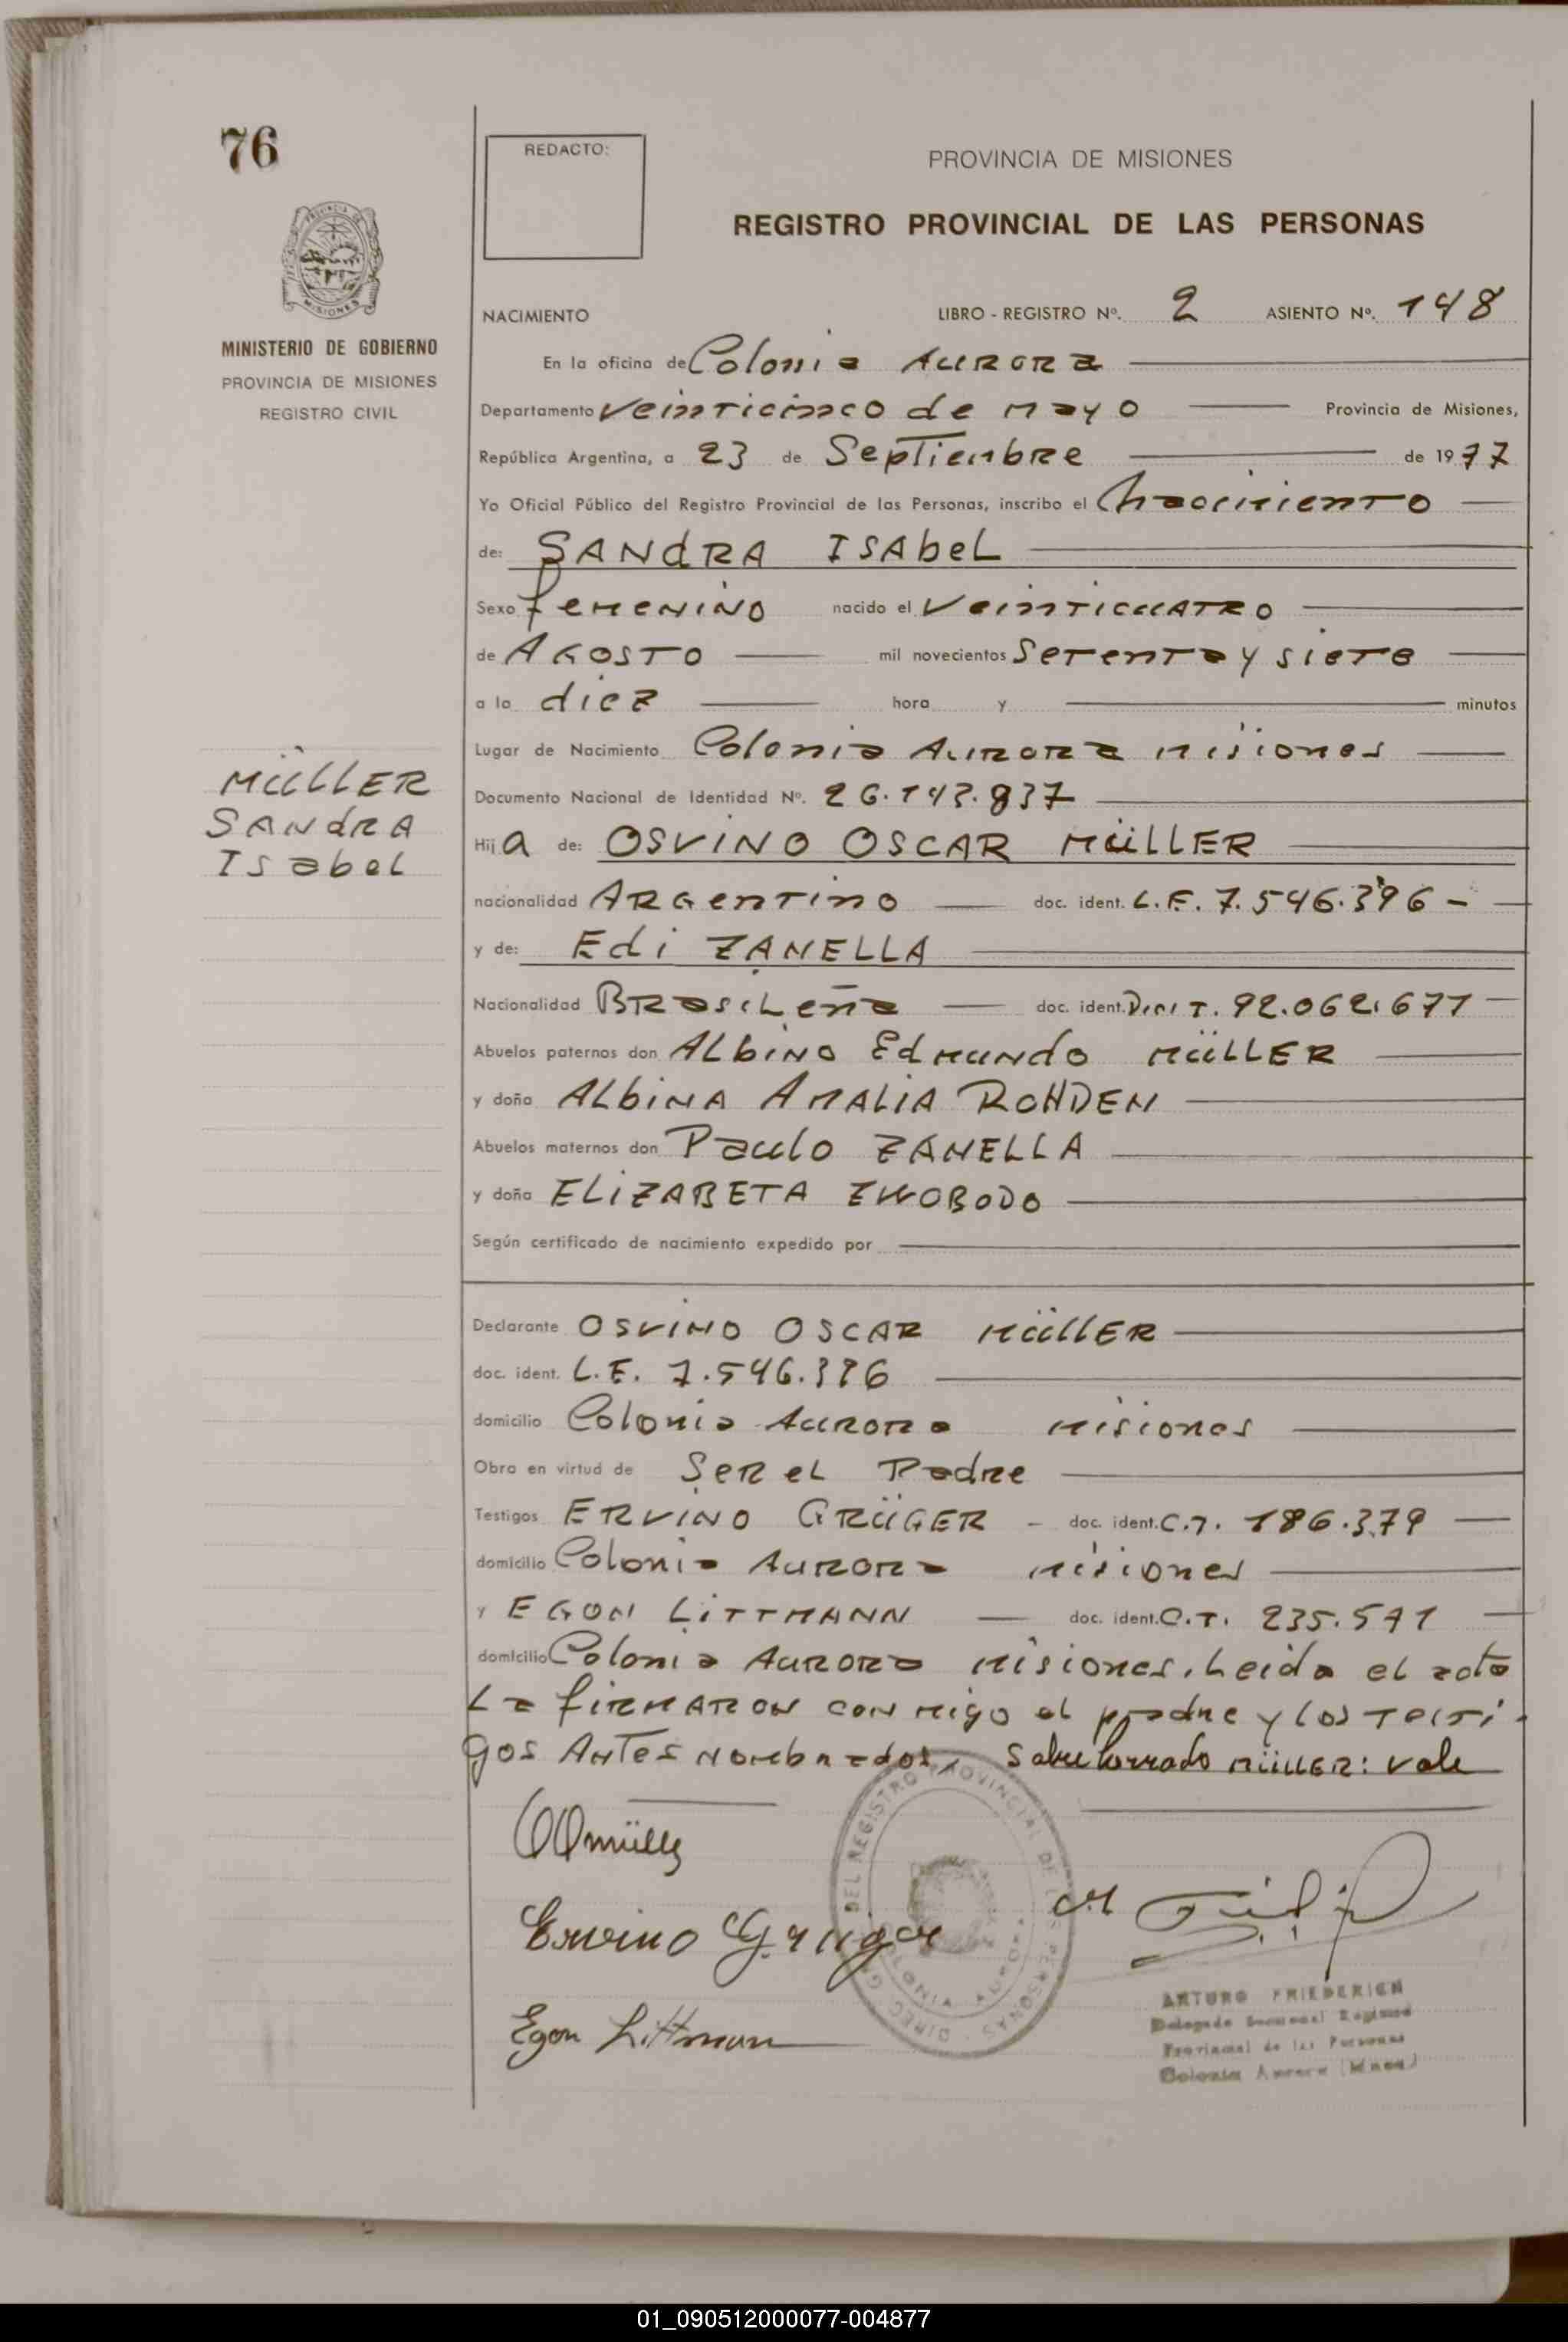 76
REDACTO:
PROVINCIA DE MISIONES
REGISTRO PROVINCIAL DE LAS PERSONAS
MINISTERIO DE GOBIERNO
PROVINCIA DE MISIONES
REGISTRO CIVIL
NACIMIENTO LIBRO - REGISTRO Nº. 2 ASIENTO Nº. 148
En la oficina de Colonia Aurora
Departamento Veinticinco de mayo Provincia de Misiones,
República Argentina, a 23 de Septiembre de 1977
Yo Oficial Público del Registro Provincial de las Personas, inscribo el Nacimiento
de: SANdRA ISAbeL
Sexo femenino nacido el Veinticuatro
de AGOSTO mil novecientos Setenta y siete
a la diez hora y minutos
Lugar de Nacimiento Colonia Aurora misiones
MÜLLER
SANdRA
ISabel
Documento Nacional de Identidad Nº.
Hija de: OSVINO OSCAR MÜLLER
nacionalidad ARGentino doc. ident. L.E. 7.546.396 -
y de: Edi ZANELLA
Nacionalidad BRasiLeña doc. ident. 92.062.671
Abuelos paternos don ALbiNO Edmundo MÜLLER
y doña ALbiNA AMALIA ROHDEN
Abuelos maternos don Paulo ZANELLA
y doña ELIZABETA ZWOBODO
Según certificado de nacimiento expedido por
Declarante OSVINO OSCAR MÜLLER
doc. ident. L.E. 7.546.396
domicilio Colonia Aurora misiones
Obra en virtud de Ser el Padre
Testigos ERVINO GRÜGER - doc. ident. C.I. 186.379
domicilio Colonia Aurora misiones
y EGON LITTMANN doc. ident. C.I. 235.571
domicilio Colonia Aurora misiones. Leida el acta
La firmaron conmigo el padre y los testi-
gos Antes nombrados. Sobre borrado MÜLLER: Vale
OOmüller
Ervino Grüger
Egon Littmann
DIREC. G. DEL REGISTRO PROVINCIAL DE LAS PERSONAS
COLONIA AURORA
ARTURO FRIEDERICH
Delegado Seccional Registro
Provincial de las Personas
Colonia Aurora (Mnes)
01_090512000077-004877